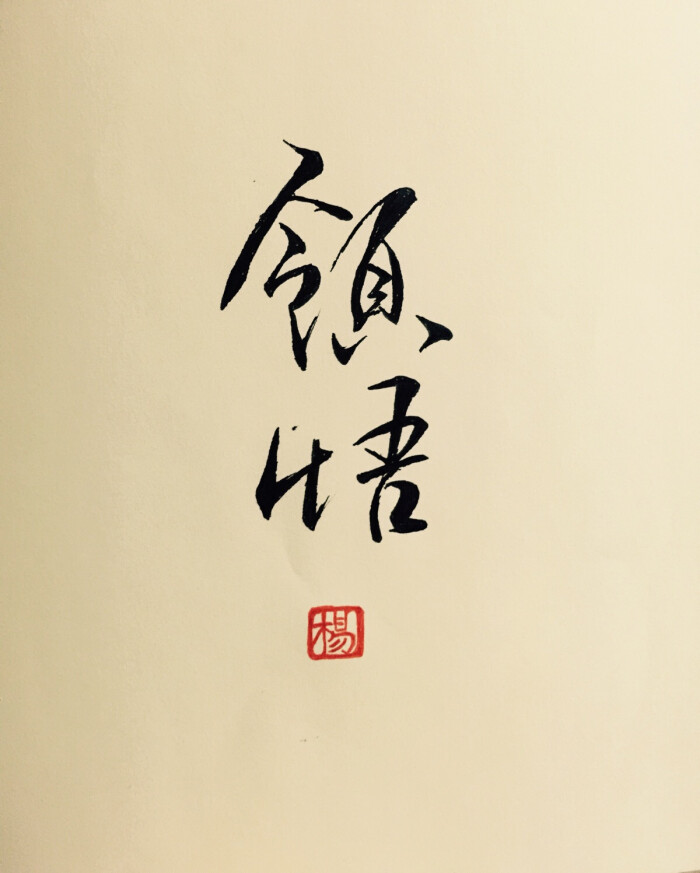 領
悟
楊